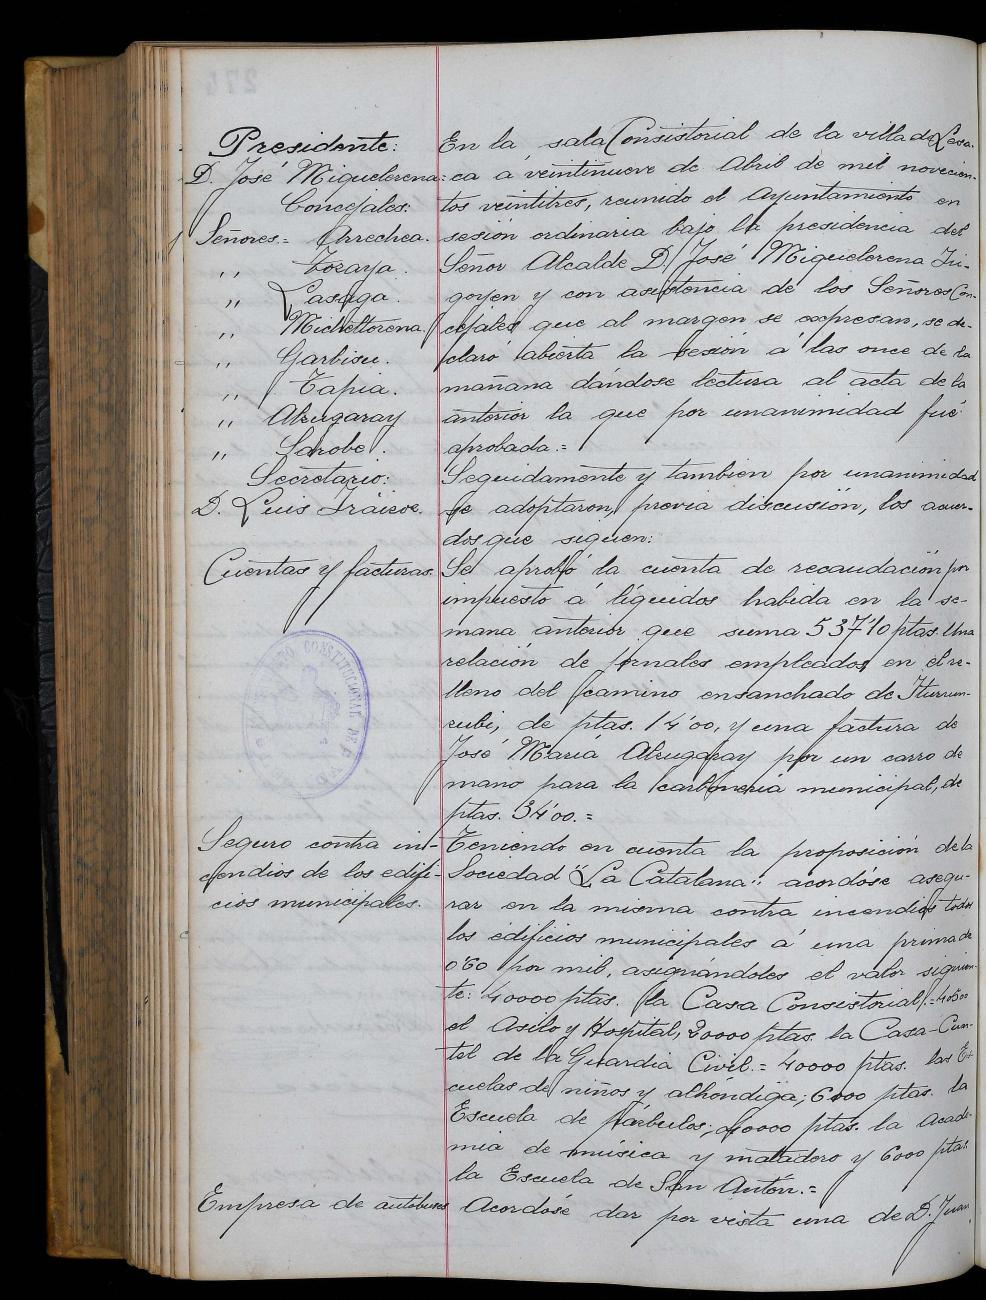 Presidente:
D. José Miguelerena=
Concejales:
Señores= Arrechea.
,, Zocaya.
,, Lasaga.
,, Micheltorena.
,, Garbisu.
,, Tapia.
,, Alzugaray
,, Sarobe.
Secretario:
D. Luis Fráizoe.
En la sala Consistorial de la villa de Lesa-
ca á veintinueve de Abril de mil novecien-
tos veintitres, reunido el Ayuntamiento en
sesión ordinaria bajo la presidencia del
Señor Alcalde D. José Miguelerena Iri-
goyen y con asistencia de los Señores Con-
cejales que al margen se expresan, se de-
claró abierta la sesión a las once de la
mañana dándose lectura al acta de la
anterior la que por unanimidad fué
aprobada.=
Seguidamente y tambien por unanimidad
se adoptaron, previa discusión, los acuer-
dos que siguen:
Cuentas y facturas.
Se aprobó la cuenta de recaudación por
impuesto a líquidos habida en la se-
mana anterior que suma 537'10 ptas. Una
relación de jornales empleados en el re-
lleno del camino ensanchado de Iturrun-
zubi, de ptas. 14'00, y una factura de
José María Alzugaray por un carro de
mano para la carbonería municipal, de
ptas. 34'00.=
CONSTITUCIONAL DE
Seguro contra in-
cendios de los edifi-
cios municipales.
Teniendo en cuenta la proposición de la
Sociedad "La Catalana" acordóse asegu-
rar en la misma contra incendios todos
los edificios municipales á una prima de
0'60 por mil, asignándoles el valor siguien-
te: 40000 ptas. la Casa Consistorial.=
el Asilo y Hospital, 20000 ptas. la Casa-Cuar-
tel de la Guardia Civil.= 40000 ptas. las Es-
cuelas de niños y alhóndiga; 6000 ptas. la
Escuela de párbulos; ptas. la Acade-
mia de música y matadero y 6000 ptas.
la Escuela de San Antón.=
Empresa de autobuses
Acordóse dar por vista una de D. Juan